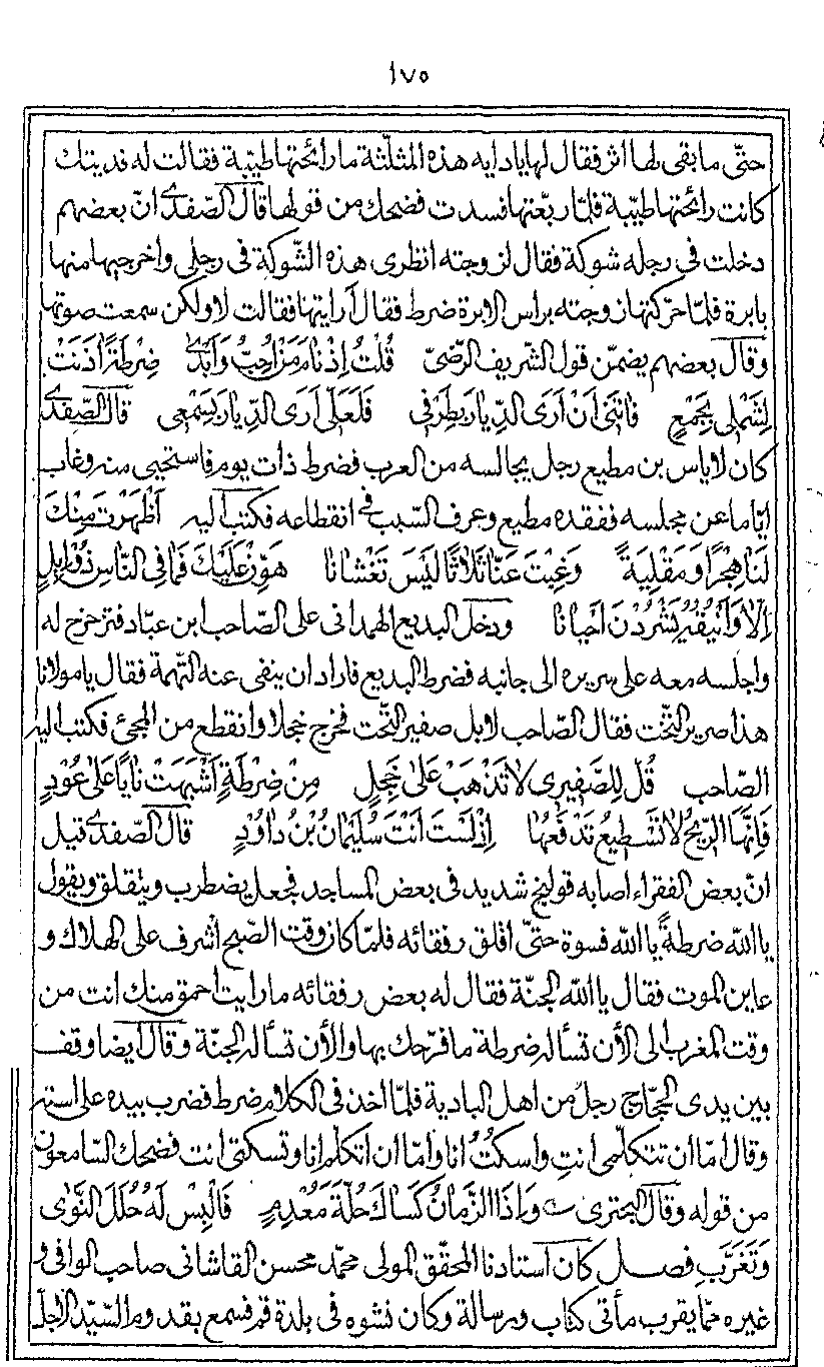 ١٧٥
حتّى ما بقى لها اثر فقال لها يا دايه هذه المثلّثة ما رائحتها طيّبة فقالت له فديتك
كانت رائحتها طيّبة فلمّا ربّعتها فسدت فضحك من قولها قال الصّفدى انّ بعضهم
دخلت فى رجله شوكة فقال لزوجته انظرى هذه الشّوكة فى رجلى واخرجيها منها
بابرة فلمّا حرّكتها زوجته براس الابرة ضرط فقال أرايتها فقالت لا ولكن سمعت صوتها
وقال بعضهم يضمّن قول الشّريف الرّضىّ قُلْتُ إِذْ نَامَ مَنْ اُحِبُّ وَاَبْدَى ضِرْطَةً اٰذَنَتْ
لِشَمْلِى بِجَمْعٍ فَاتَنِى اَنْ اَرَى الدِّيَارَ بِطَرْفِى فَلَعَلِّى اَرَى الدِّيَارَ بِسَمْعِى قال الصّفدى
كان لاياس بن مطيع رجل يجالسه من العرب فضرط ذات يوم فاستحيى منه وغاب
ايّاما عن مجلسه ففقده مطيع وعرف السّبب فى انقطاعه فكتب اليه اَظْهَرْتَ مِنْكَ
لَنَا هِجْرًا وَمَقْلِيَةً وَغِبْتَ عَنَّا ثَلَاثًا لَيْسَ تَغْشَانَا هَوِّنْ عَلَيْكَ فَمَا فِى النَّاسِ ذُو اِبِلٍ
اِلَّا وَاَيْنُقُهُ يَشْرُدْنَ اَحْيَانَا ودخل البديع الهمدانى على الصّاحب ابن عبّاد فتزحزح له
واجلسه معه على سريره الى جانبه فضرط البديع فاراد ان ينفى عنه التّهمة فقال يا مولانا
هذا صرير التّخت فقال الصّاحب لا بل صفير التّحت فخرج خجلا وانقطع من المجئ فكتب اليه
الصّاحب قُلْ لِلصَّفِيرِى لَا تَذْهَبْ عَلَى خَجَلٍ مِنْ ضِرْطَةٍ اَشْبَهَتْ نَايًا عَلَى عُودٍ
فَاِنَّهَا الرِّيحُ لَا تَسْطِيعُ تَدْفَعُهَا اِذْ لَسْتَ اَنْتَ سُلَيْمَانُ بْنُ دَاوُدٍ قال الصّفدى قيل
انّ بعض الفقراء اصابه قولنج شديد فى بعض المساجد فجعل يضطرب ويتقلق ويقول
يا اللّه ضرطةً يا اللّه فسوة حتّى اقلق رفقائه فلمّا كان وقت الصّبح اشرف على الهلاك و
عاين الموت فقال يا اللّه الجنّة فقال له بعض رفقائه ما رايت احمق منك انت من
وقت المغرب الى الأن تسأله ضرطة ما فرّحك بها والأن تسأله الجنّة وقال ايضا وقف
بين يدى الحجّاج رجلٌ من اهل البادية فلمّا اخذ فى الكلام ضرط فضرب بيده على استه
وقال امّا ان تتكلّمى انتِ واسكتُ انا وامّا ان اتكلّم انا وتسكتى انت فضحك السّامعون
من قوله وقال البحترى وَاِذَا الزَّمَانُ كَسَاكَ حُلَّةَ مَعْدِمٍ فَالْبِسْ لَهُ حُلَلَ النَّوٰى
وَتَغَرَّبِ فصل كان استادنا المحقّق المولى محمّد محسن القاشانى صاحب الوافى و
غيره ممّا يقرب مأتى كتاب ورسالة وكان نشوه فى بلدة قم فسمع بقدوم السّيّد الاجلّ